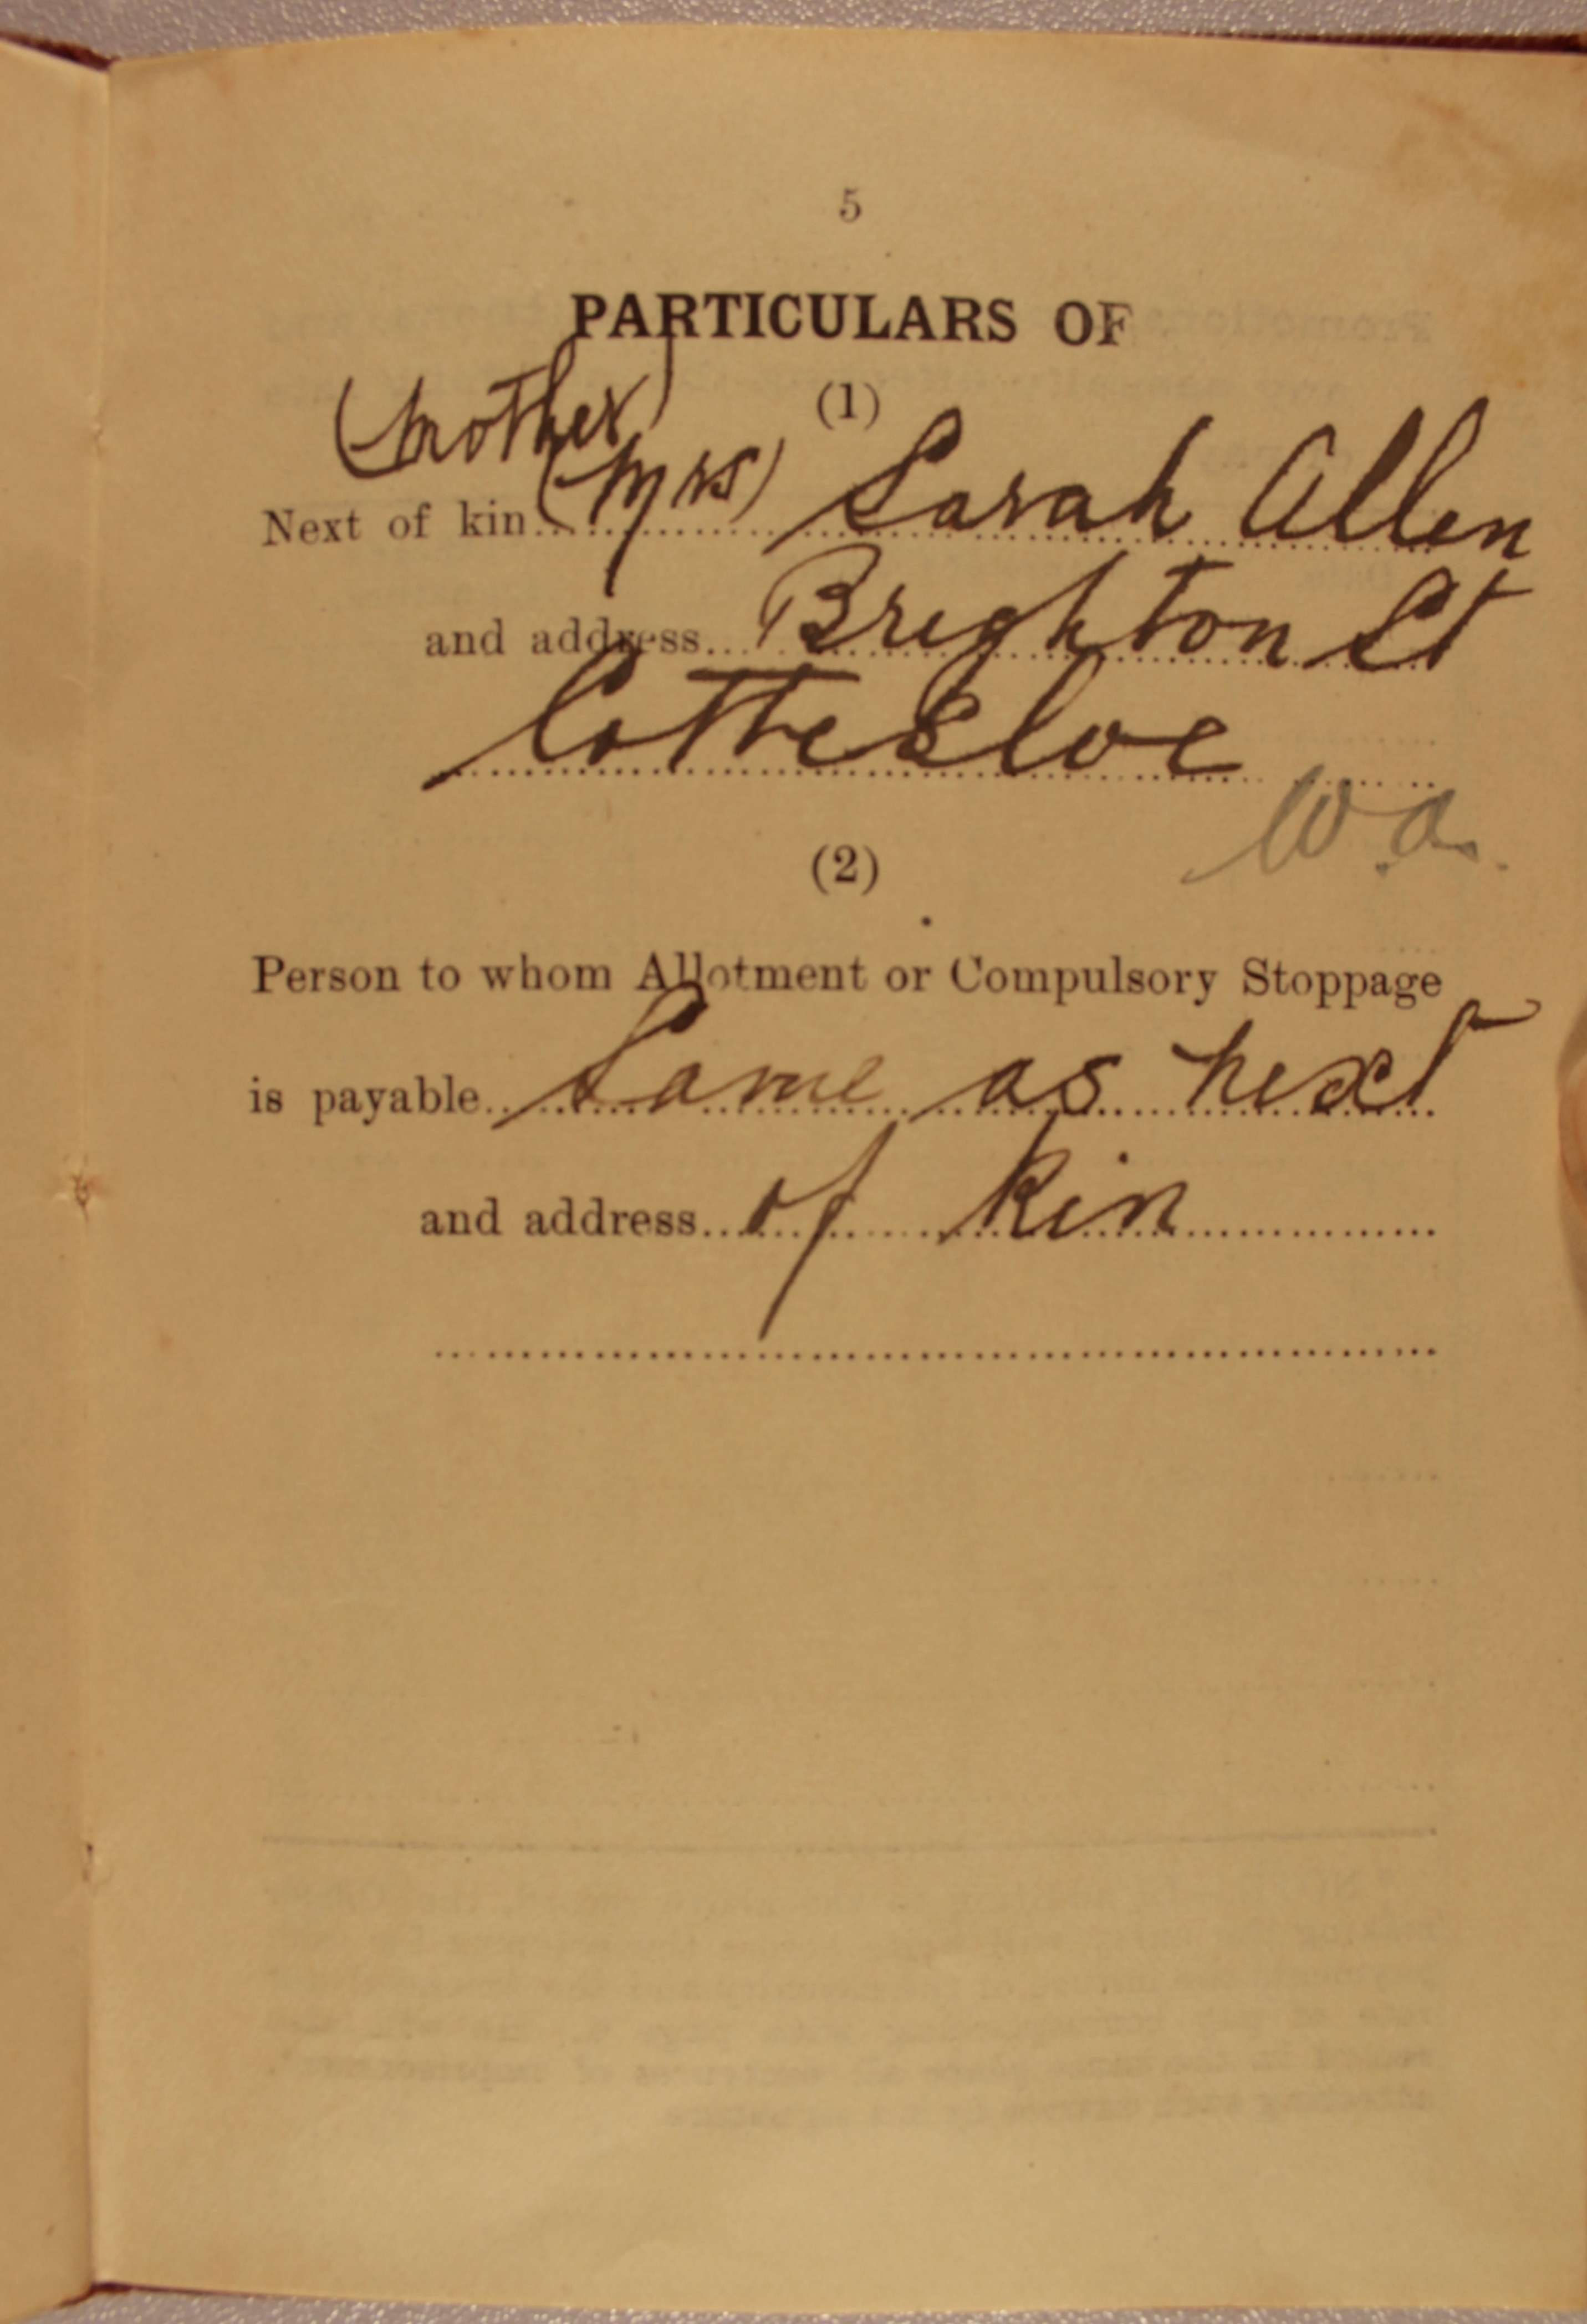 5
PARTICULARS OF
(1)
(Mother)
Next of kin (Mrs) Sarah Allen
and address Brighton St
Cottesloe
W.A.
(2)
Person to whom Allotment or Compulsory Stoppage
is payable Same as next
and address of Kin